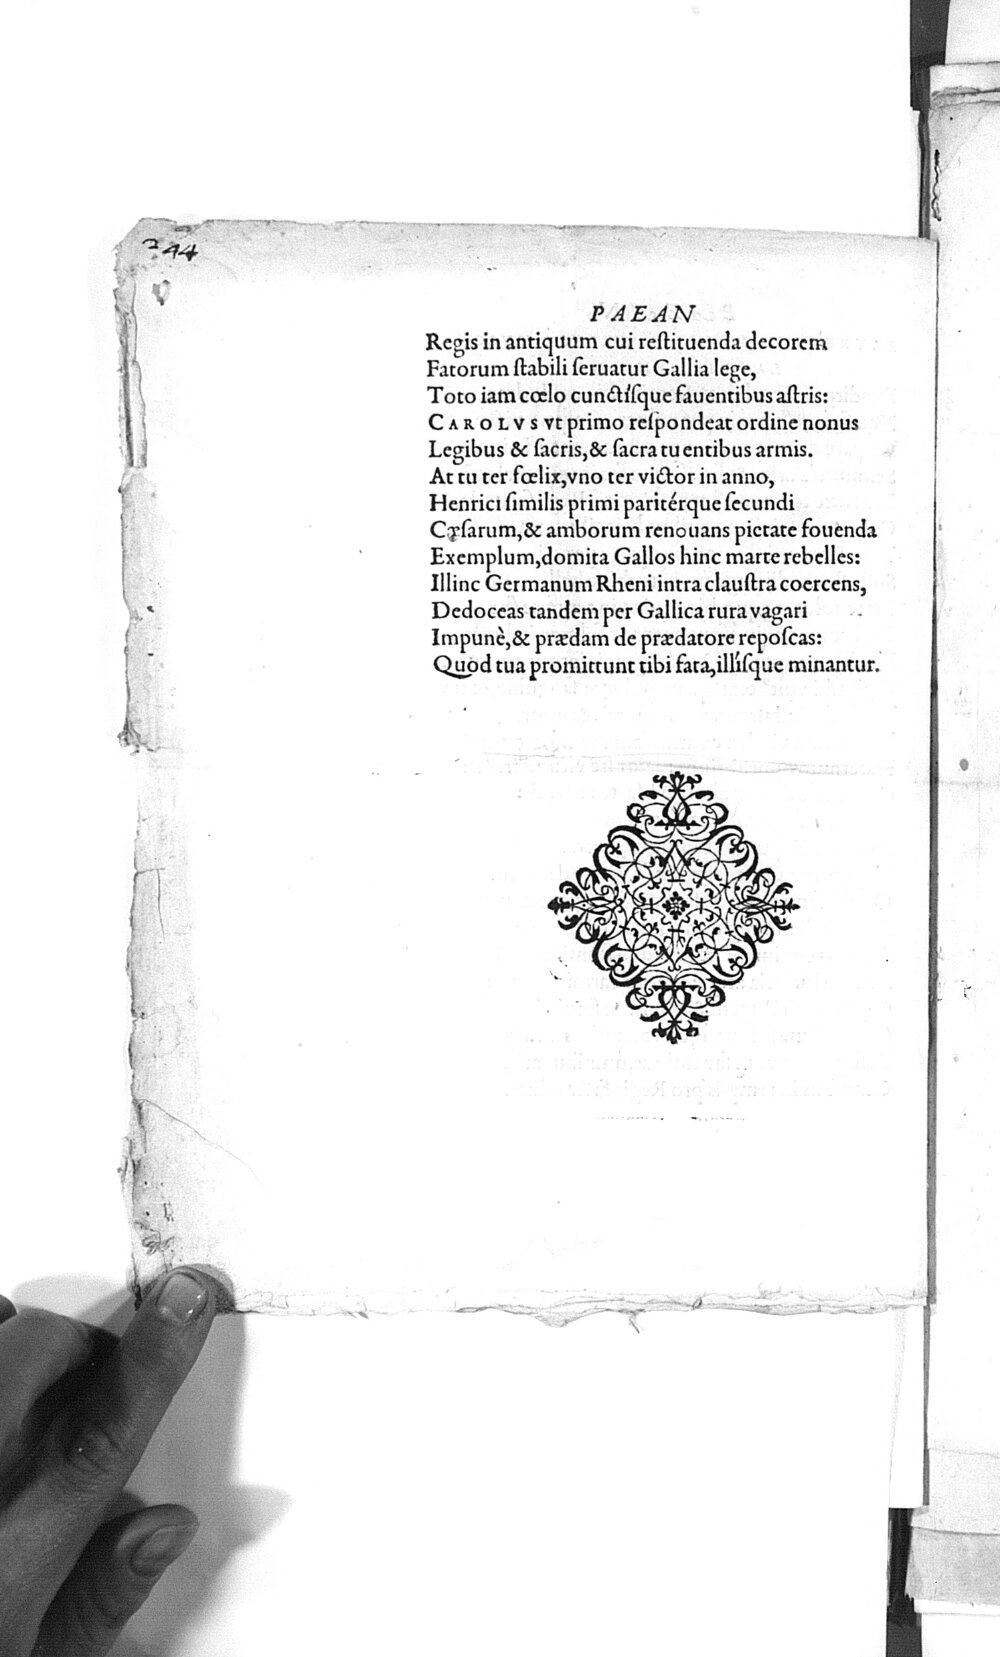 244
PAEAN
Regis in antiquum cui reſtituenda decorem
Fatorum ſtabili ſeruatur Gallia lege,
Toto iam cœlo cunctíſque fauentibus aſtris:
CAROLVS vt primo reſpondeat ordine nonus
Legibus & ſacris,& ſacra tuentibus armis.
At tu ter fœlix,vno ter victor in anno,
Henrici ſimilis primi paritérque ſecundi
Cæſarum,& amborum renouans pietate fouenda
Exemplum,domita Gallos hinc marte rebelles:
Illinc Germanum Rheni intra clauſtra coercens,
Dedoceas tandem per Gallica rura vagari
Impunè,& prædam de prædatore repoſcas:
Quòd tua promittunt tibi fata,illíſque minantur.